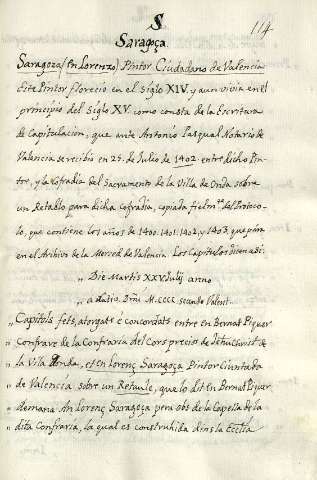 S
114
Saragoça.
Saragoza (en Lorenzo) Pintor Ciudadano de Valencia
Este Pintor florecio en el Siglo XIV. y aun vivia en el
principio del Siglo XV. como consta de la Escritura
de Capitulacion, que ante Antonio Pasqual Notario de
Valencia se recibio en 25. de Julio de 1402 entre dicho Pin-
tor, y la Cofradia del Sacramento de la Villa de Onda sobre
un Retablo para dicha cofradia, copiada fielmte. del Protoco-
lo, que contiene los años de 1400. 1401. 1402, y 1403, que para
en el Archivo de la Merced de Valencia. Los Capitulos dicen asi:
„ Die Martis XXV Julij anno
„ a Nativ. Dñi M.CCCC. secundo Valent.
„ Capitols fets, atorgats è concordats entre en Bernat Piquer
„ Confrare de la Confraria del Cors precios de Jehuchrist de
„ la Vila Donda, et en Lorenç Saragoça Pintor Ciuntada
„ de Valencia sobre un Retaule, que lo dit en Bernat Piquer
„ demana An Lorenç Saragoça pera obs de la Capella de la
„ dita Confraria, la qual es construhida dins la Eccl̃ia